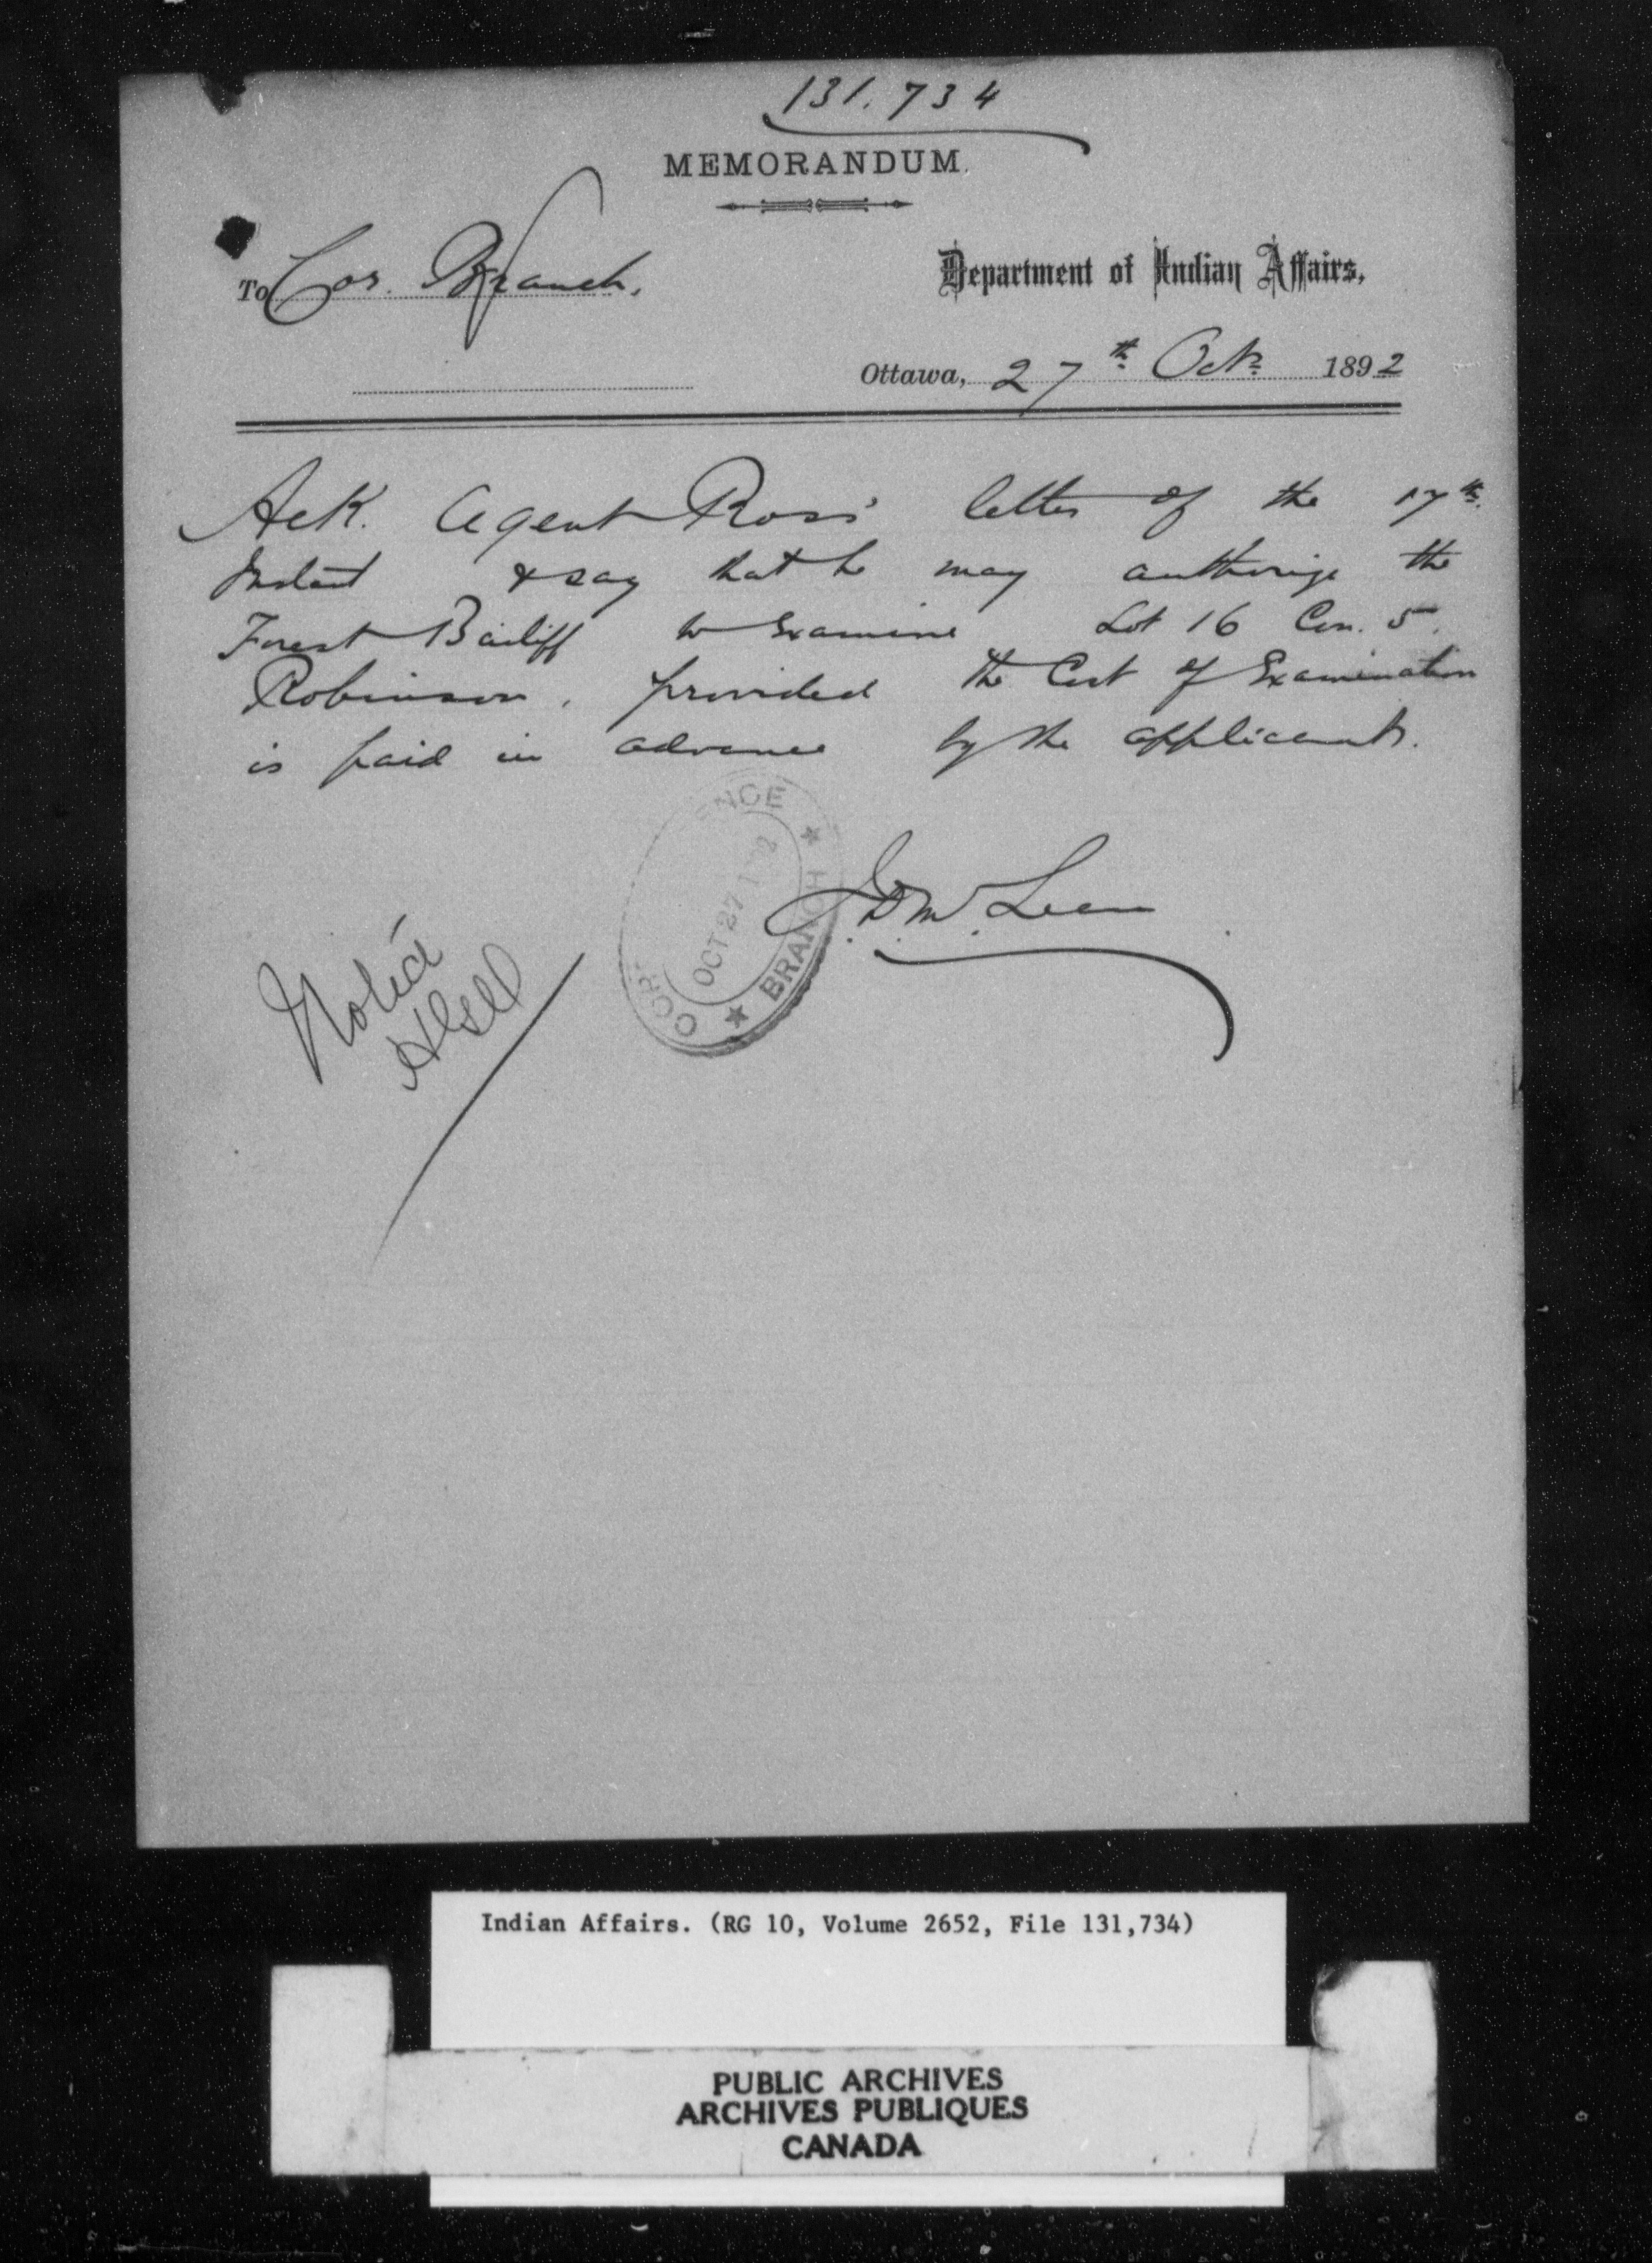 131.734
MEMORANDUM.
To Cor. Branch.
Department of Indian Affairs,
Ottawa, 27th Oct. 1892
Ack. Agent Ross' letter of the 17th
Instant & say that he may authorize the
Forest Bailiff to Examine Lot 16 Con. 5.
Robinson, provided the Cost of Examination
is paid in advance by the applicants.
J.D.McLean
CORR NCE
OCT 27 1892
BRANCH
Noted
Indian Affairs. (RG 10, Volume 2652, File 131,734)
PUBLIC ARCHIVES
ARCHIVES PUBLIQUES
CANADA